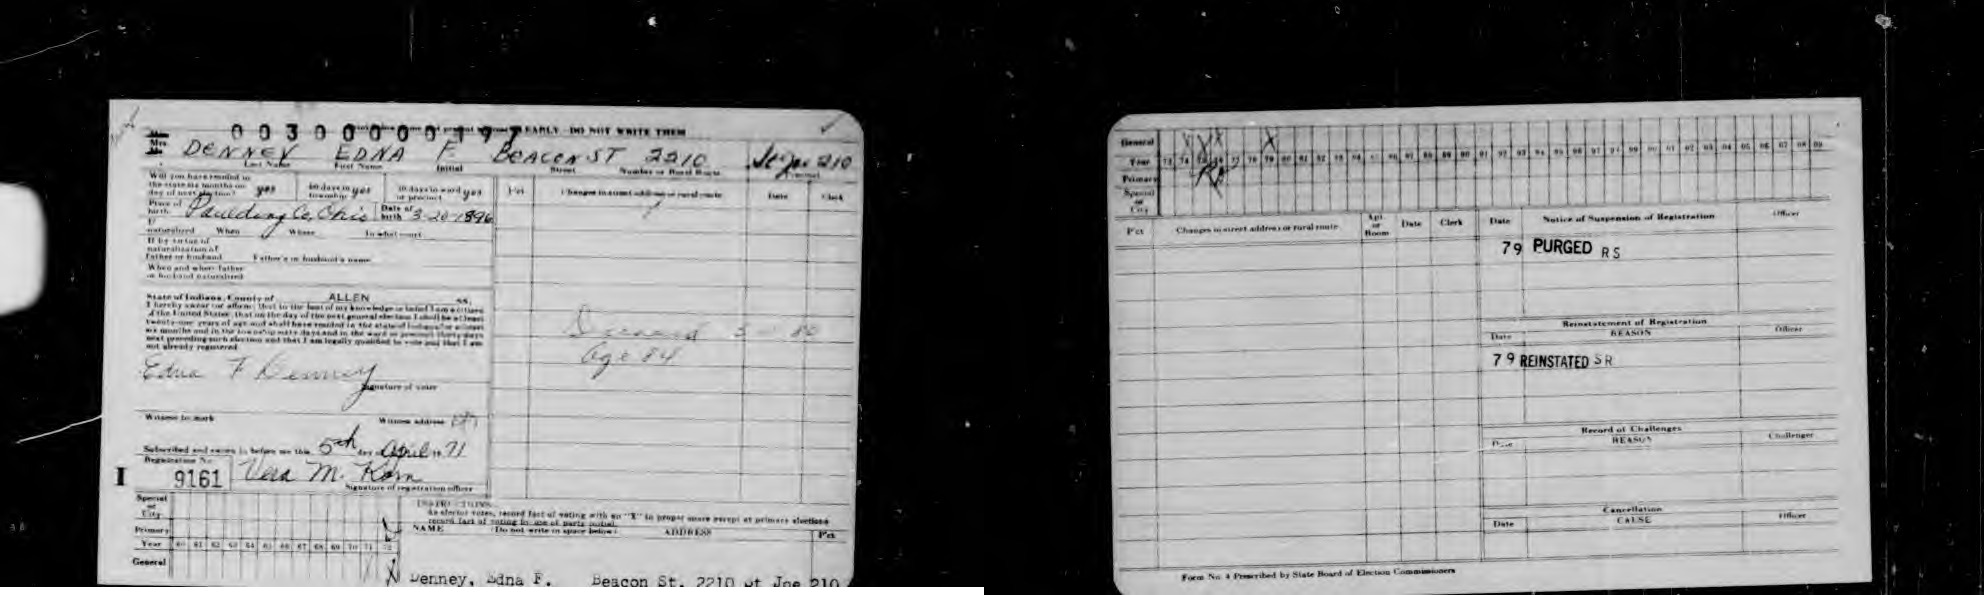 003000000197 EARLY - DO NOT WRITE THEM
Mrs. DENNEY EDNA F. BEACON ST 2210 St Joe 210
Last Name First Name Initial Street Number or Rural Route Precinct
Will you have resided in
the state six months on
day of next election? yes 60 days in township yes 30 days in ward or precinct yes
Pct Changes in street address or rural route Date Clerk
Place of birth Paulding Co, Ohio Date of birth 3-20-1896
If naturalized When Where In what court
If by virtue of
naturalization of
father or husband Father's or husband's name
When and where father
or husband naturalized
State of Indiana, County of ALLEN ss.
I hereby swear (or affirm) that to the best of my knowledge or belief I am a citizen
of the United States; that on the day of the next general election I shall be at least
twenty-one years of age and shall have resided in the state of Indiana for at least
six months and in the township sixty days and in the ward or precinct thirty days
next preceding such election and that I am legally qualified to vote and that I am
not already registered.
Deceased
Age 84
Edna F Denney
Signature of voter
Witness to mark Witness address
Subscribed and sworn to before me this 5th day of April 1971
Registration No.
I 9161 Vera M. Korn
Signature of registration officer
Special
or
City
Primary
Year 60 61 62 63 64 65 66 67 68 69 70 71 72
General
INSTRUCTIONS
As elector votes, record fact of voting with an "X" in proper space except at primary elections
record fact of voting by use of party initial.
NAME Do not write in space below: ADDRESS Pct
Denney, Edna F. Beacon St. 2210 St Joe 210
General X X X X
Year 73 74 75 76 77 78 79 80 81 82 83 84 85 86 87 88 89 90 91 92 93 94 95 96 97 98 99 00 01 02 03 04 05 06 07 08 09
Primary R
Special
or
City
Pct Changes in street address or rural route Apt. or Room Date Clerk
Date Notice of Suspension of Registration Officer
79 PURGED RS
Reinstatement of Registration
Date REASON Officer
79 REINSTATED SR
Record of Challenges
Date REASON Challenger
Cancellation
Date CAUSE Officer
Form No. 4 Prescribed by State Board of Election Commissioners